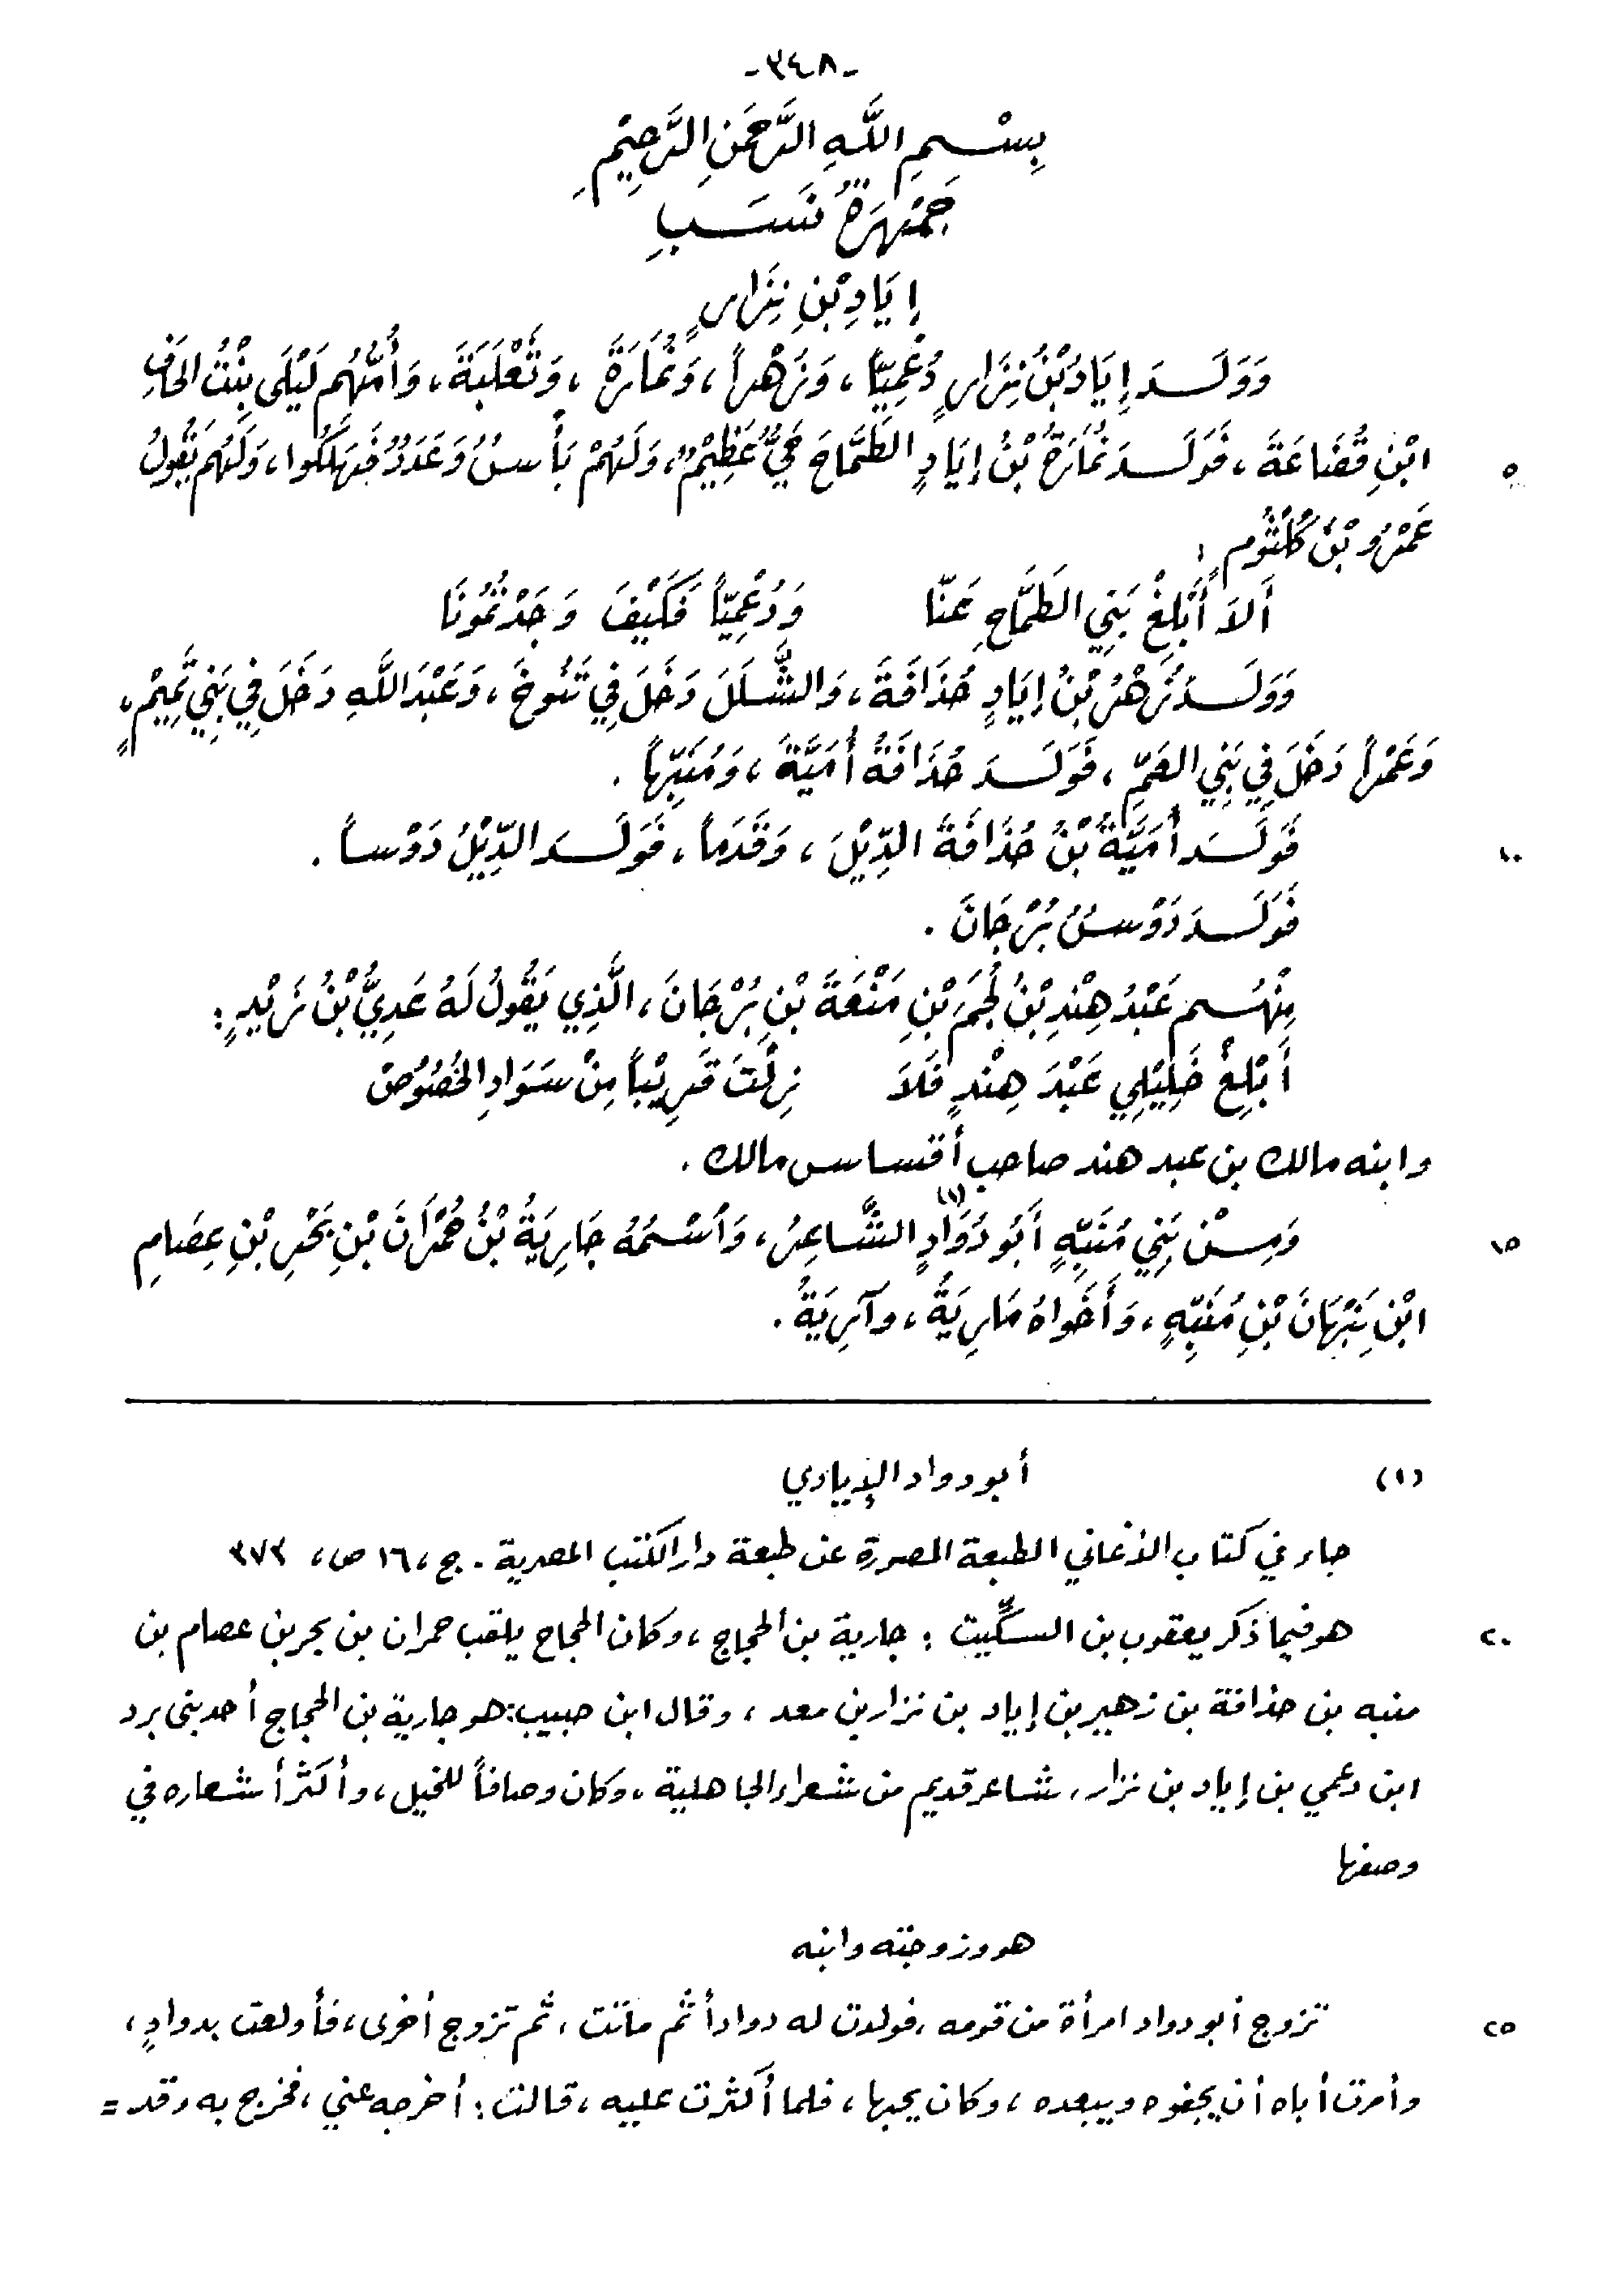 -٣٤٨-
بِسْمِ اللَّهِ الرَّحْمَنِ الرَّحِيْمِ
جَمْهَرَةُ نَسَبِ
إِيَادِ بْنِ نِزَارٍ
وَوَلَدَ إِيَادُ بْنُ نِزَارٍ دُعْمِيّاً، وَزُهْراً، وَنُمَارَةَ، وَثَعْلَبَةَ، وَأُمُّهُم لَيْلَى بِنْتُ الحَافِ
٥ ابْنِ قُضَاعَةَ، فَوَلَدَ نُمَارَةُ بْنُ إِيَادٍ الطَّمَّاحَ حَيٌّ عَظِيْمٌ، وَلَهُمْ بَأْسٌ وَعَدَدٌ فَهَلَكُوا، وَلَهُم يَقُولُ
عَمْرُو بْنُ كُلْثُومٍ:
أَلاَ أَبْلِغْ بَنِي الطَّمَّاحِ عَنَّا وَدُعْمِيّاً فَكَيْفَ وَجَدْتُمُونَا
وَوَلَدَ زُهْرُ بْنُ إِيَادٍ حُذَافَةَ، وَالشَّلَلَ دَخَلَ فِي تَنُوخَ، وَعَبْدَ اللَّهِ دَخَلَ فِي بَنِي تَمِيْمٍ،
وَعَمْراً دَخَلَ فِي بَنِي العَمِّ، فَوَلَدَ حُذَافَةُ أُمَيَّةَ، وَمُنَبِّهاً.
١٠ فَوَلَدَ أُمَيَّةُ بْنُ حُذَافَةَ الدِّيْلَ، وَقَدَماً، فَوَلَدَ الدِّيْلُ دَوْساً.
فَوَلَدَ دَوْسٌ بُرْجَانَ.
مِنْهُم عَبْدُ هِنْدِ بْنُ لُجَمَ بْنِ مَنْعَةَ بْنِ بُرْجَانَ، الَّذِي يَقُولُ لَهُ عَدِيُّ بْنُ زَيْدٍ:
أَبْلِغْ خَلِيْلِي عَبْدَ هِنْدٍ فَلاَ زِلْتَ قَرِيْباً مِنْ سَوَادِ الخُصُوْصْ
وابنه مالك بن عبد هند صاحب أقساس مالك.
١٥ وَمِنْ بَنِي مُنَبِّهٍ أَبُو دُوَادٍ(١) الشَّاعِرُ، وَاسْمُهُ جَارِيَةُ بْنُ حُمْرَانَ بْنِ بَحْرِ بْنِ عِصَامِ
ابْنِ نَبْهَانَ بْنِ مُنَبِّهٍ، وَأَخَوَاهُ مَارِيَةُ، وآرِيَةُ.
(١) أبو دواد الإيادي
جاء في كتاب الأغاني الطبعة المصورة عن طبعة دار الكتب المصرية. ج، ١٦ ص، ٣٧٣
٢٠ هو فيما ذكر يعقوب بن السكّيت: جارية بن الحجاج، وكان الحجاج يلقب حمران بن بحر بن عصام بن
منبه بن حذافة بن زهير بن إياد بن نزار بن معد، وقال ابن حبيب: هو جارية بن الحجاج أحد بني برد
ابن دعمي بن إياد بن نزار، شاعر قديم من شعراء الجاهلية، وكان وصافاً للخيل، وأكثر أشعاره في
وصفها
هو وزوجته وابنه
٢٥ تزوج أبو دواد امرأة من قومه، فولدت له دواداً ثم ماتت، ثم تزوج أخرى، فأولعت بدوادٍ،
وأمرت أباه أن يجفوه ويبعده، وكان يحبها، فلما أكثرت عليه، قالت: أخرجه عني، فخرج به وقد =